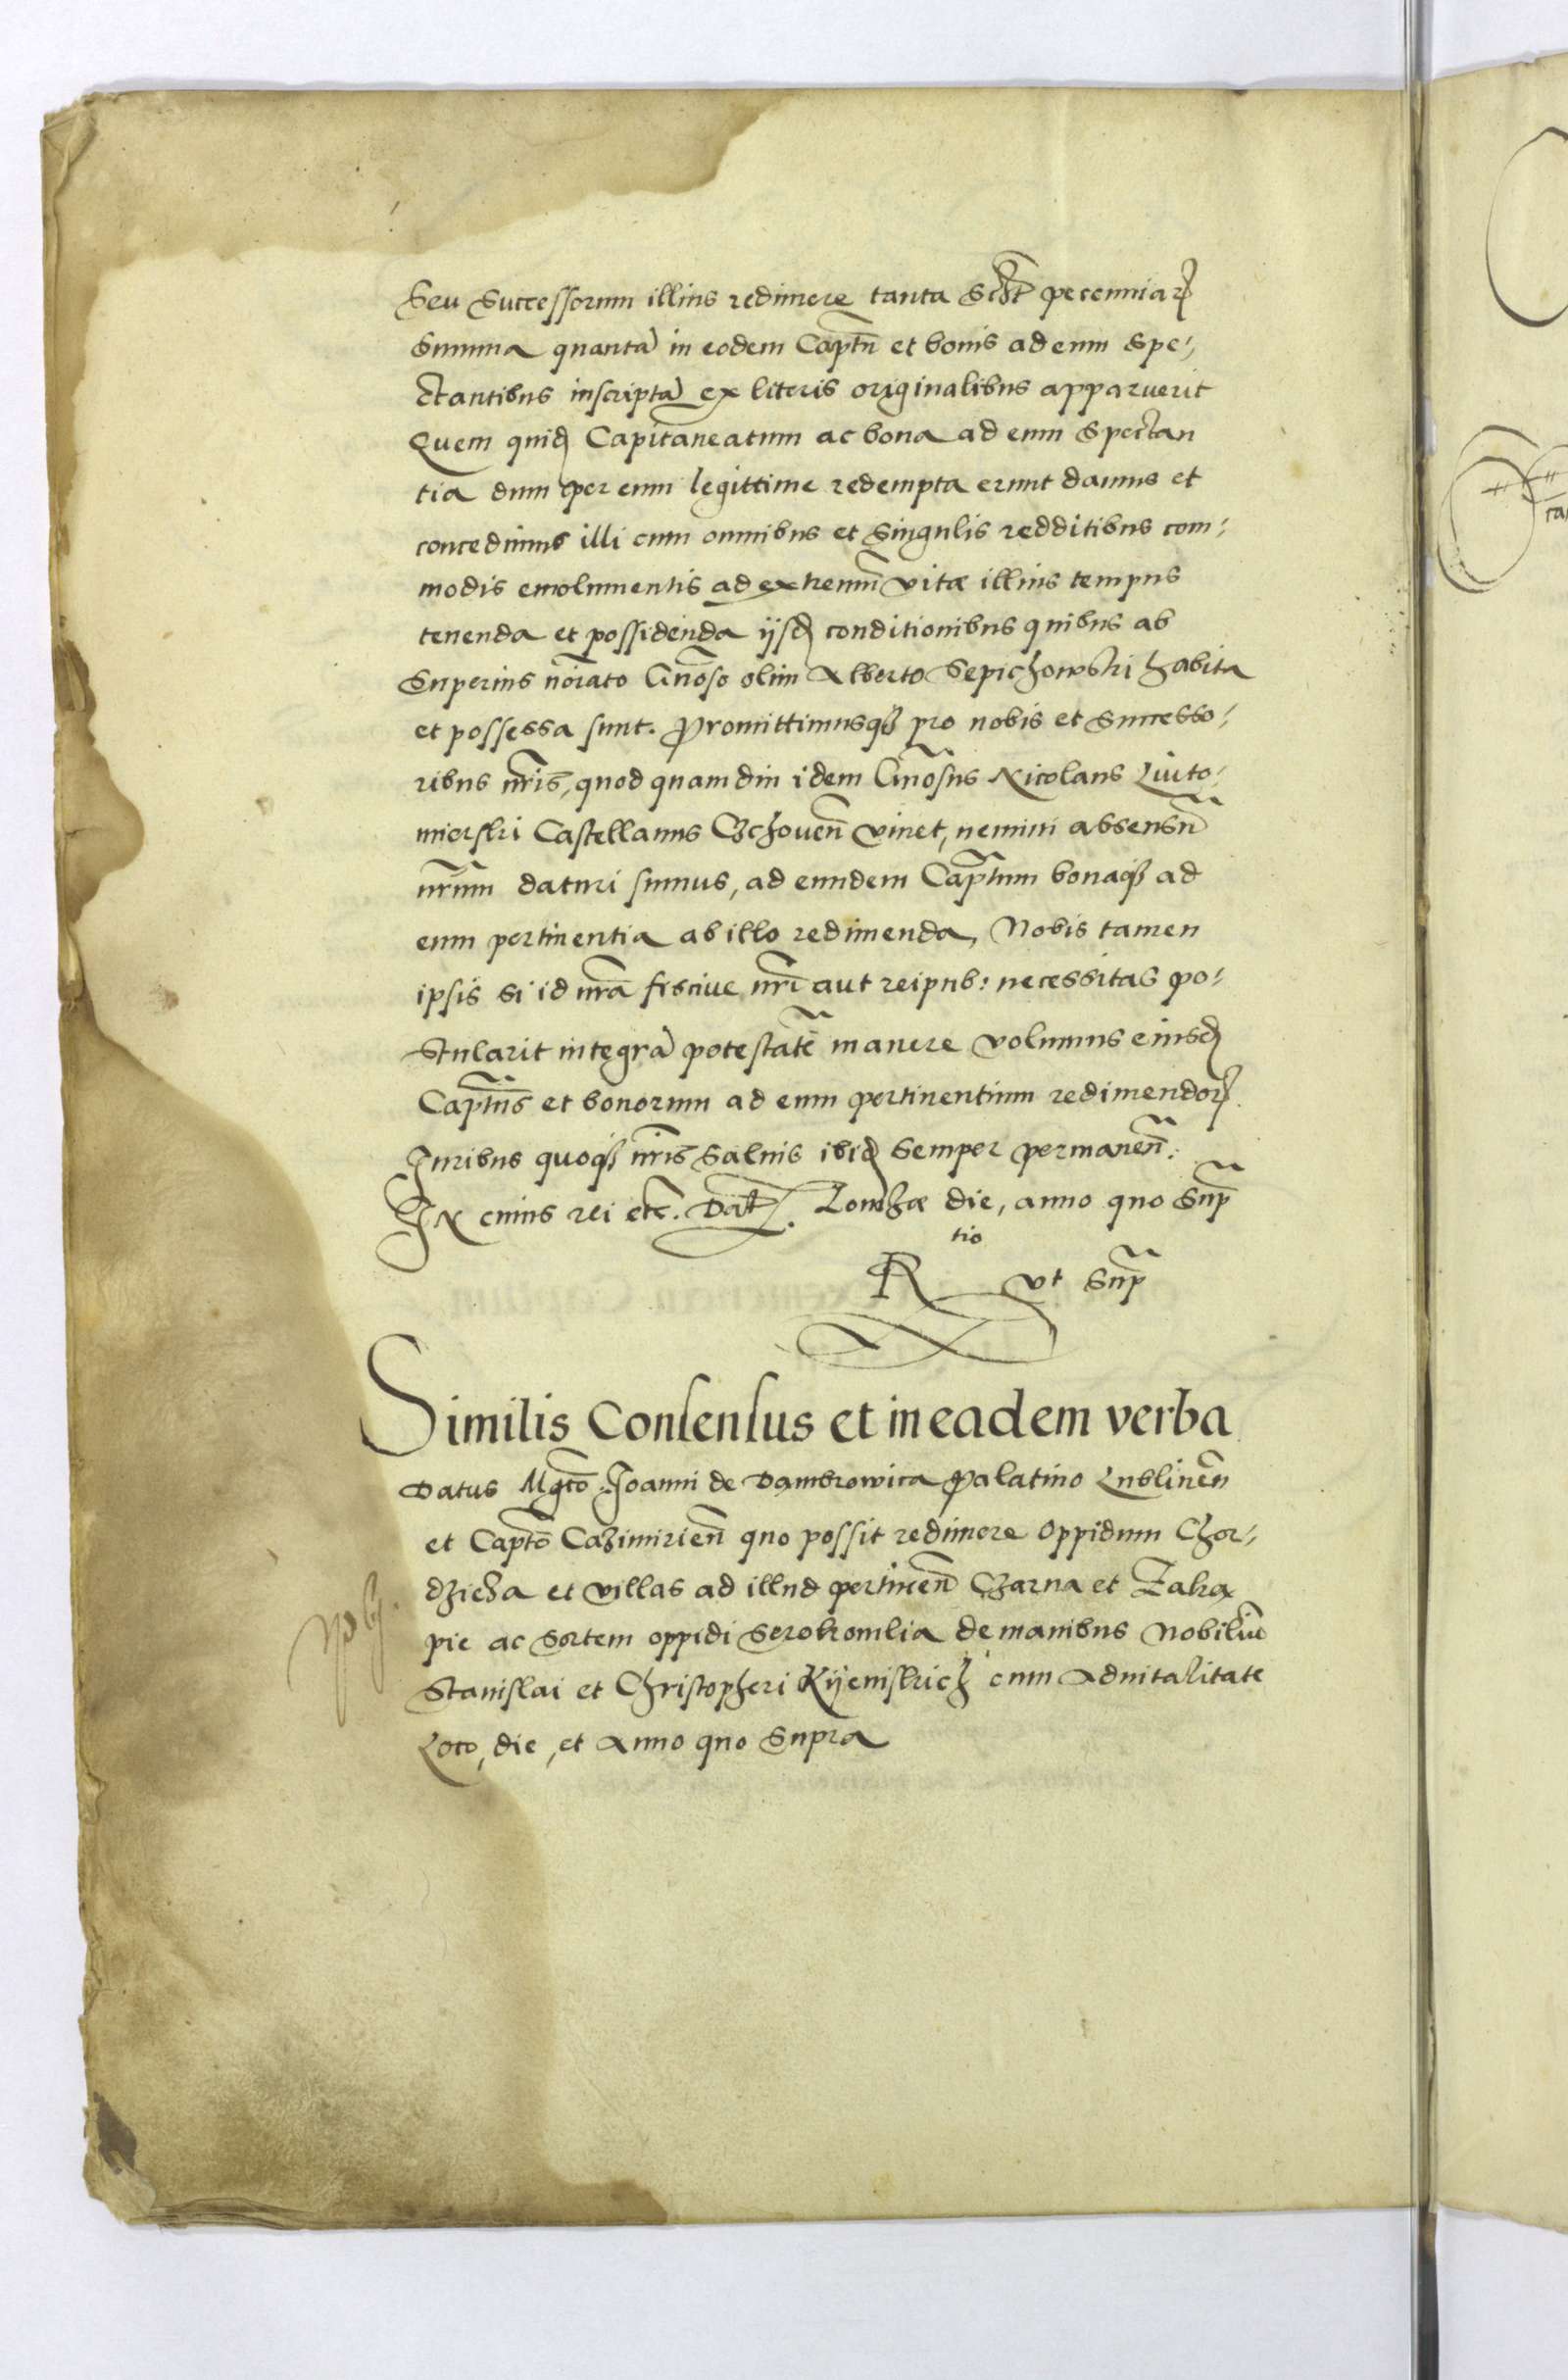 Seu Successorum illius redimere tanta Sclt̃ pecenniarꝝ
Summa quanta in eodem Captũ et bonis ad eum Spe-
ctantibus inscripta ex literis originalibus apparuerit
Quem quidꝫ Capitaneatum ac bona ad eum Spectan
tia dum per eum legittime redempta erunt damus et
concedimus illi cum omnibus et Singulis redditibus com-
modis emolumentis ad extremũ vitæ illius tempus
tenenda et possidenda ijsdꝫ conditionibus quibus ab
Superius noĩato Gñoso olim Alberto Sepichowski habita
et possessa sunt. Promittimusqꝫ pro nobis et Successo-
ribus nr̃is, quod quamdiu idem Gnõsus Nicolaus Liuto-
mierski Castellanus Czchouen̄ viuet, nemini absensũ
nr̃um daturi sumus, ad eundem Captum bonaqꝫ ad
eum pertinentia ab illo redimenda, Nobis tamen
ipsis si id nr̃a fisciue nr̃i aut reipub: necessitas po-
stularit integrã potestatẽ manere volumus eiusdꝫ
Captũs et bonorum ad eum pertinentium redimendorꝝ
Iuribus quoqꝫ nr̃is Saluis ibidꝫ Semper permanen̄.
IN cuius rei etc̃. Dat̃. Lomzæ die, anno quo Sup̃
R tio vt Sup̃
Similis Consensus et in eadem verba
Datus Mgcõ Joanni de Dambrowica Palatino Lublinen̄
et Captõ Cazimirien̄ quo possit redimere Oppidum Chor-
dzieza et villas ad illud pertinen̄ Czarna et Zaką
pie ac Sortem oppidi Serokomlia de manibus Nobiliũ
Stanislai et Christopheri Kijenskich cum aduitalitate
Loco, die, et Anno quo Supra